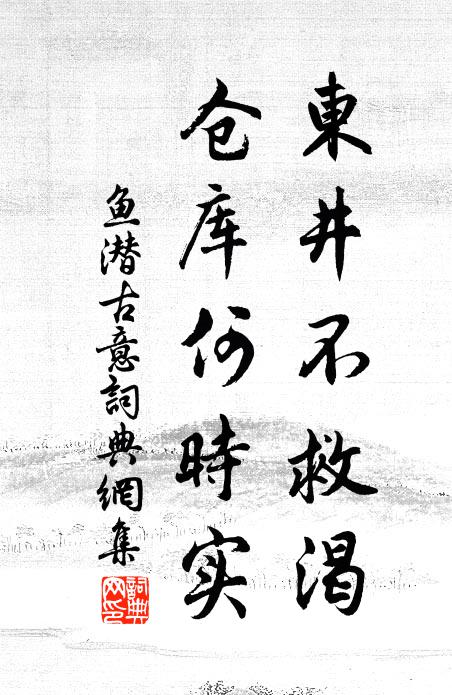 東井不救渴
仓库何時实
鱼潜古意詞典網集
詞典网印